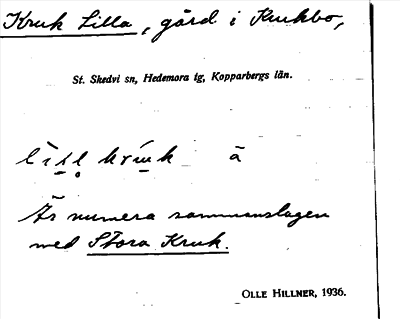 Kruk Lilla, gård i Krukbo,
St. Skedvi sn, Hedemora tg, Kopparbergs län.
ā
Är numera sammanslagen
med Stora Kruk.
OLLE HILLNER, 1936.